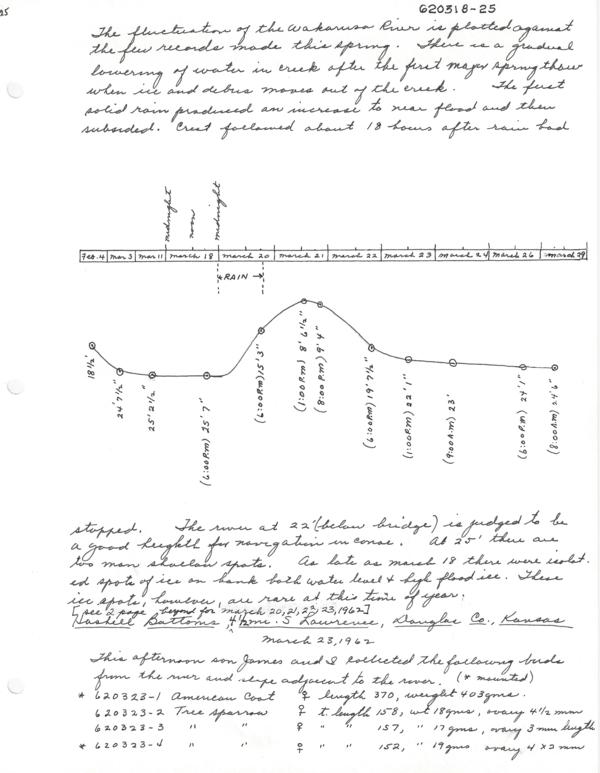 25
620318-25
The fluctuation of the Wakarusa River is plotted against
the few records made this spring. There is a gradual
lowering of water in creek after the first major spring thaw
when ice and debris moves out of the creek. The first
solid rain produced an increase to near flood and then
subsided. Crest followed about 18 hours after rain had
midnight
noon
midnight
Feb. 4 | Mar 3 | Mar 11 | March 18 | March 20 | March 21 | March 22 | March 23 | March 24 | March 26 | March 29
← RAIN →
18½'
24' 7½"
25' 2½"
(6:00 P.M) 25' 7"
(6:00 P.M) 15' 3"
(1:00 P.M) 8' 6½"
(8:00 P.M) 9' 4"
(6:00 P.M) 19' 7½"
(1:00 P.M) 22' 1"
(9:00 A.M) 23'
(6:00 P.M) 24' 1"
(8:00 A.M) 24' 6"
stopped. The river at 22' (below bridge) is judged to be
a good heighth for navigation in canoe. At 25' there are
too man shallow spots. As late as March 18 there were isolat-
ed spots of ice on bank both water level & high flood ice. These
ice spots, however, are rare at this time of year.
[see 2 page beyond for March 20, 21, 22, 23, 1962]
Haskell Bottoms, 4½ mi. S Lawrence, Douglas Co., Kansas
March 23, 1962
This afternoon son James and I collected the following birds
from the river and slope adjacent to the river. (* mounted)
* 620323-1 American Coot ♀ length 370, weight 403 gms.
620323-2 Tree Sparrow ♀ t. length 158, wt 18 gms, ovary 4½ mm
620323-3 " " ♀ " " 157, " 17 gms, ovary 3 mm length
* 620323-4 " " ♀ " " 152, " 19 gms ovary 4 x 2 mm